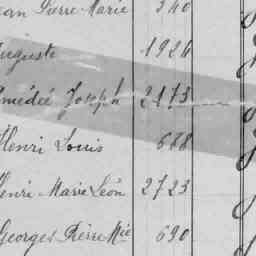 Jean Pierre Marie 340
Auguste 1926
Amédée Joseph 2173
Henri Louis 688
Henri Marie Léon 2723
Georges Pierre Mie 690